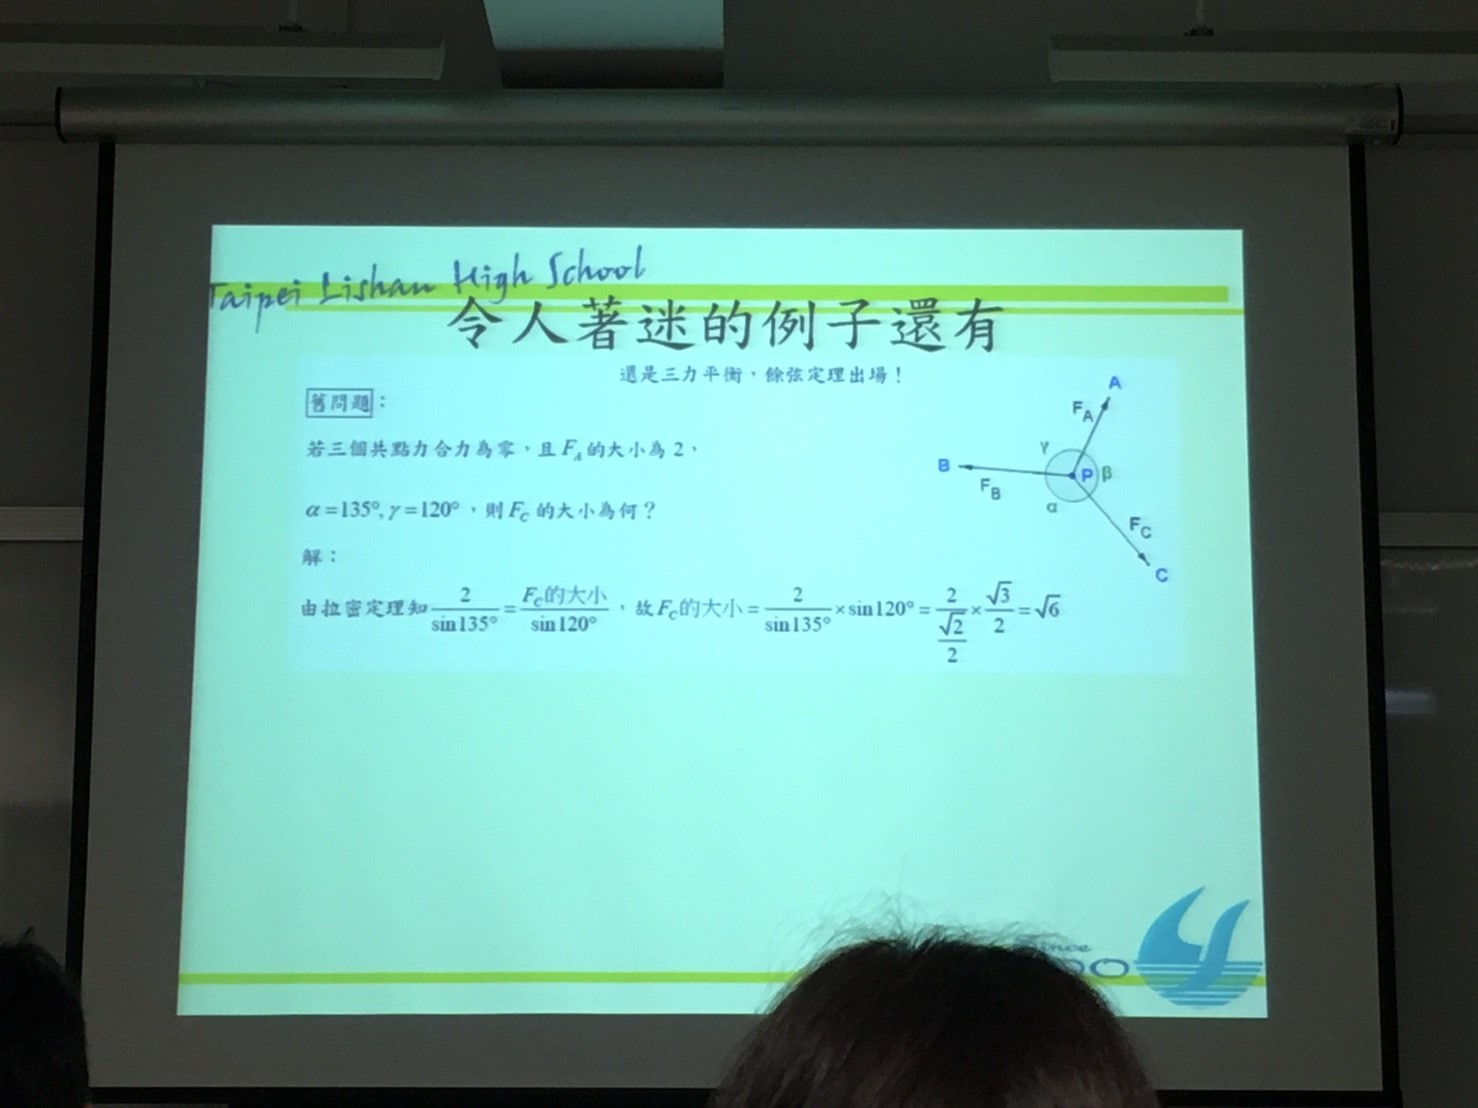 Taipei Lishan High School
令人著迷的例子還有
還是三力平衡，餘弦定理出場！
舊問題：
若三個共點力合力為零，且 F_A 的大小為 2，
α=135°, γ=120°，則 F_C 的大小為何？
解：
由拉密定理知 2/sin135° = F_C的大小/sin120°，故 F_C的大小 = 2/sin135° × sin120° = 2/(√2/2) × √3/2 = √6
A
F_A
γ
B
P
β
F_B
α
F_C
C
Since